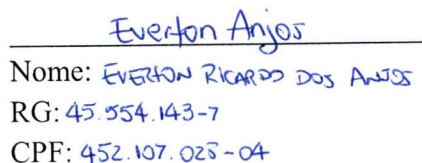 Everton Anjos
Nome: EVERTON RICARDO DOS ANJOS
RG: 45.554.143-7
CPF: 452.107.028-04